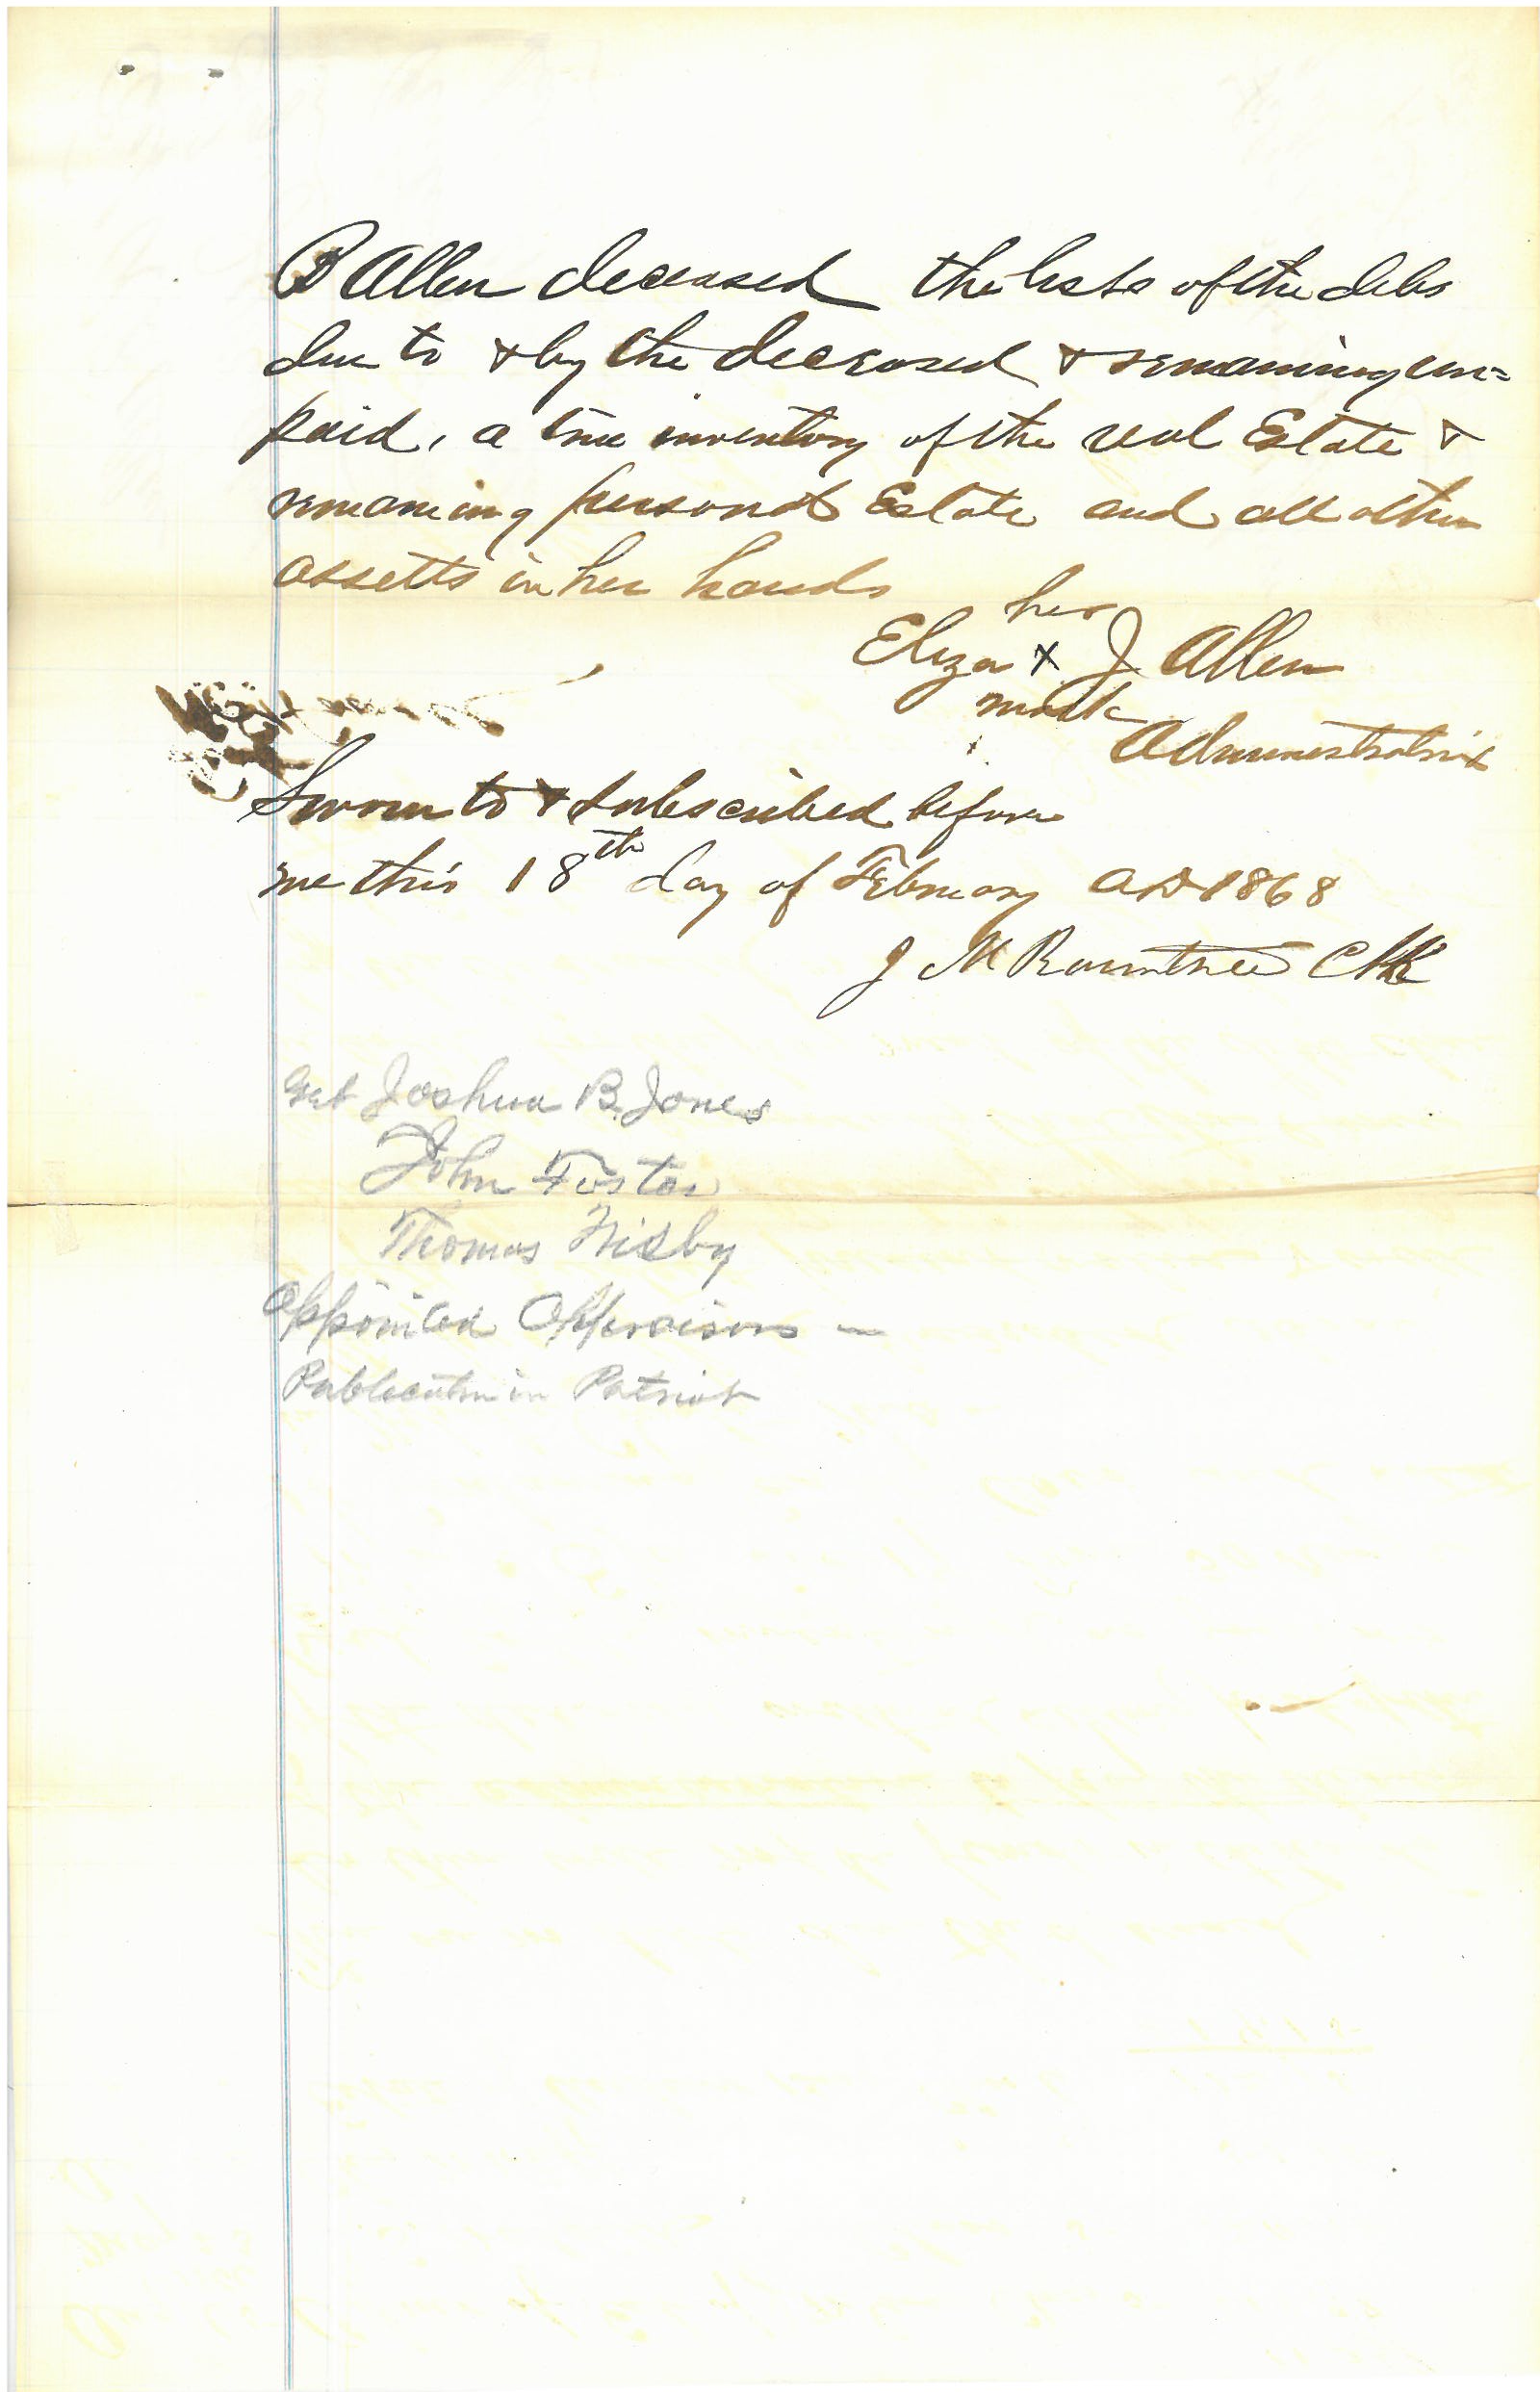 B Allen deceased the lists of the debs
due to & by the deceased & remaining un=
paid, a true inventory of the real Estate &
remaining personal Estate and all other
assetts in her hands
her
Eliza X J Allen
mark
Administratrix
Sworn to & subscribed before
me this 18th day of February AD 1868
J M Rountree Clk
Joshua B. Jones
John Foster
Thomas Frisby
Appointed Appraisers —
Publication in Patriot